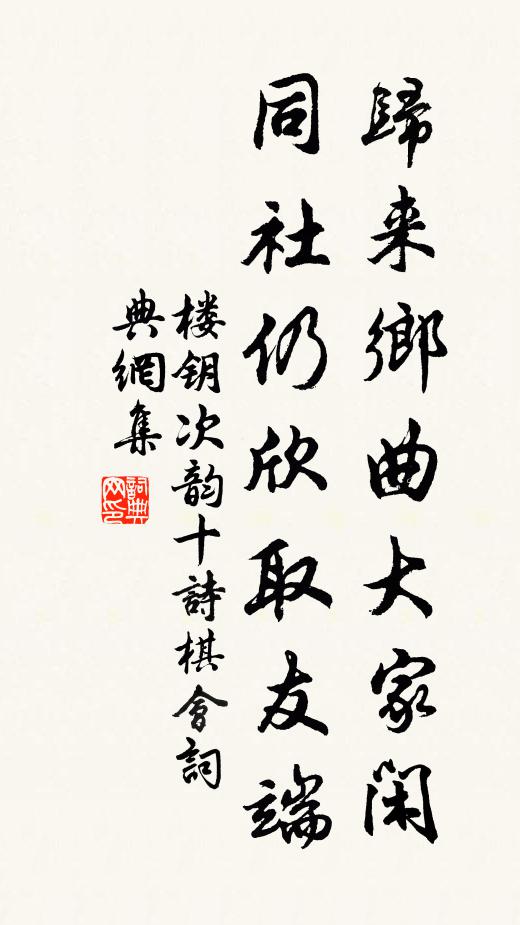 歸来鄉曲大家閑
同社仍欣取友端
楼钥次韵十詩棋會詞
典網集
詞典网印